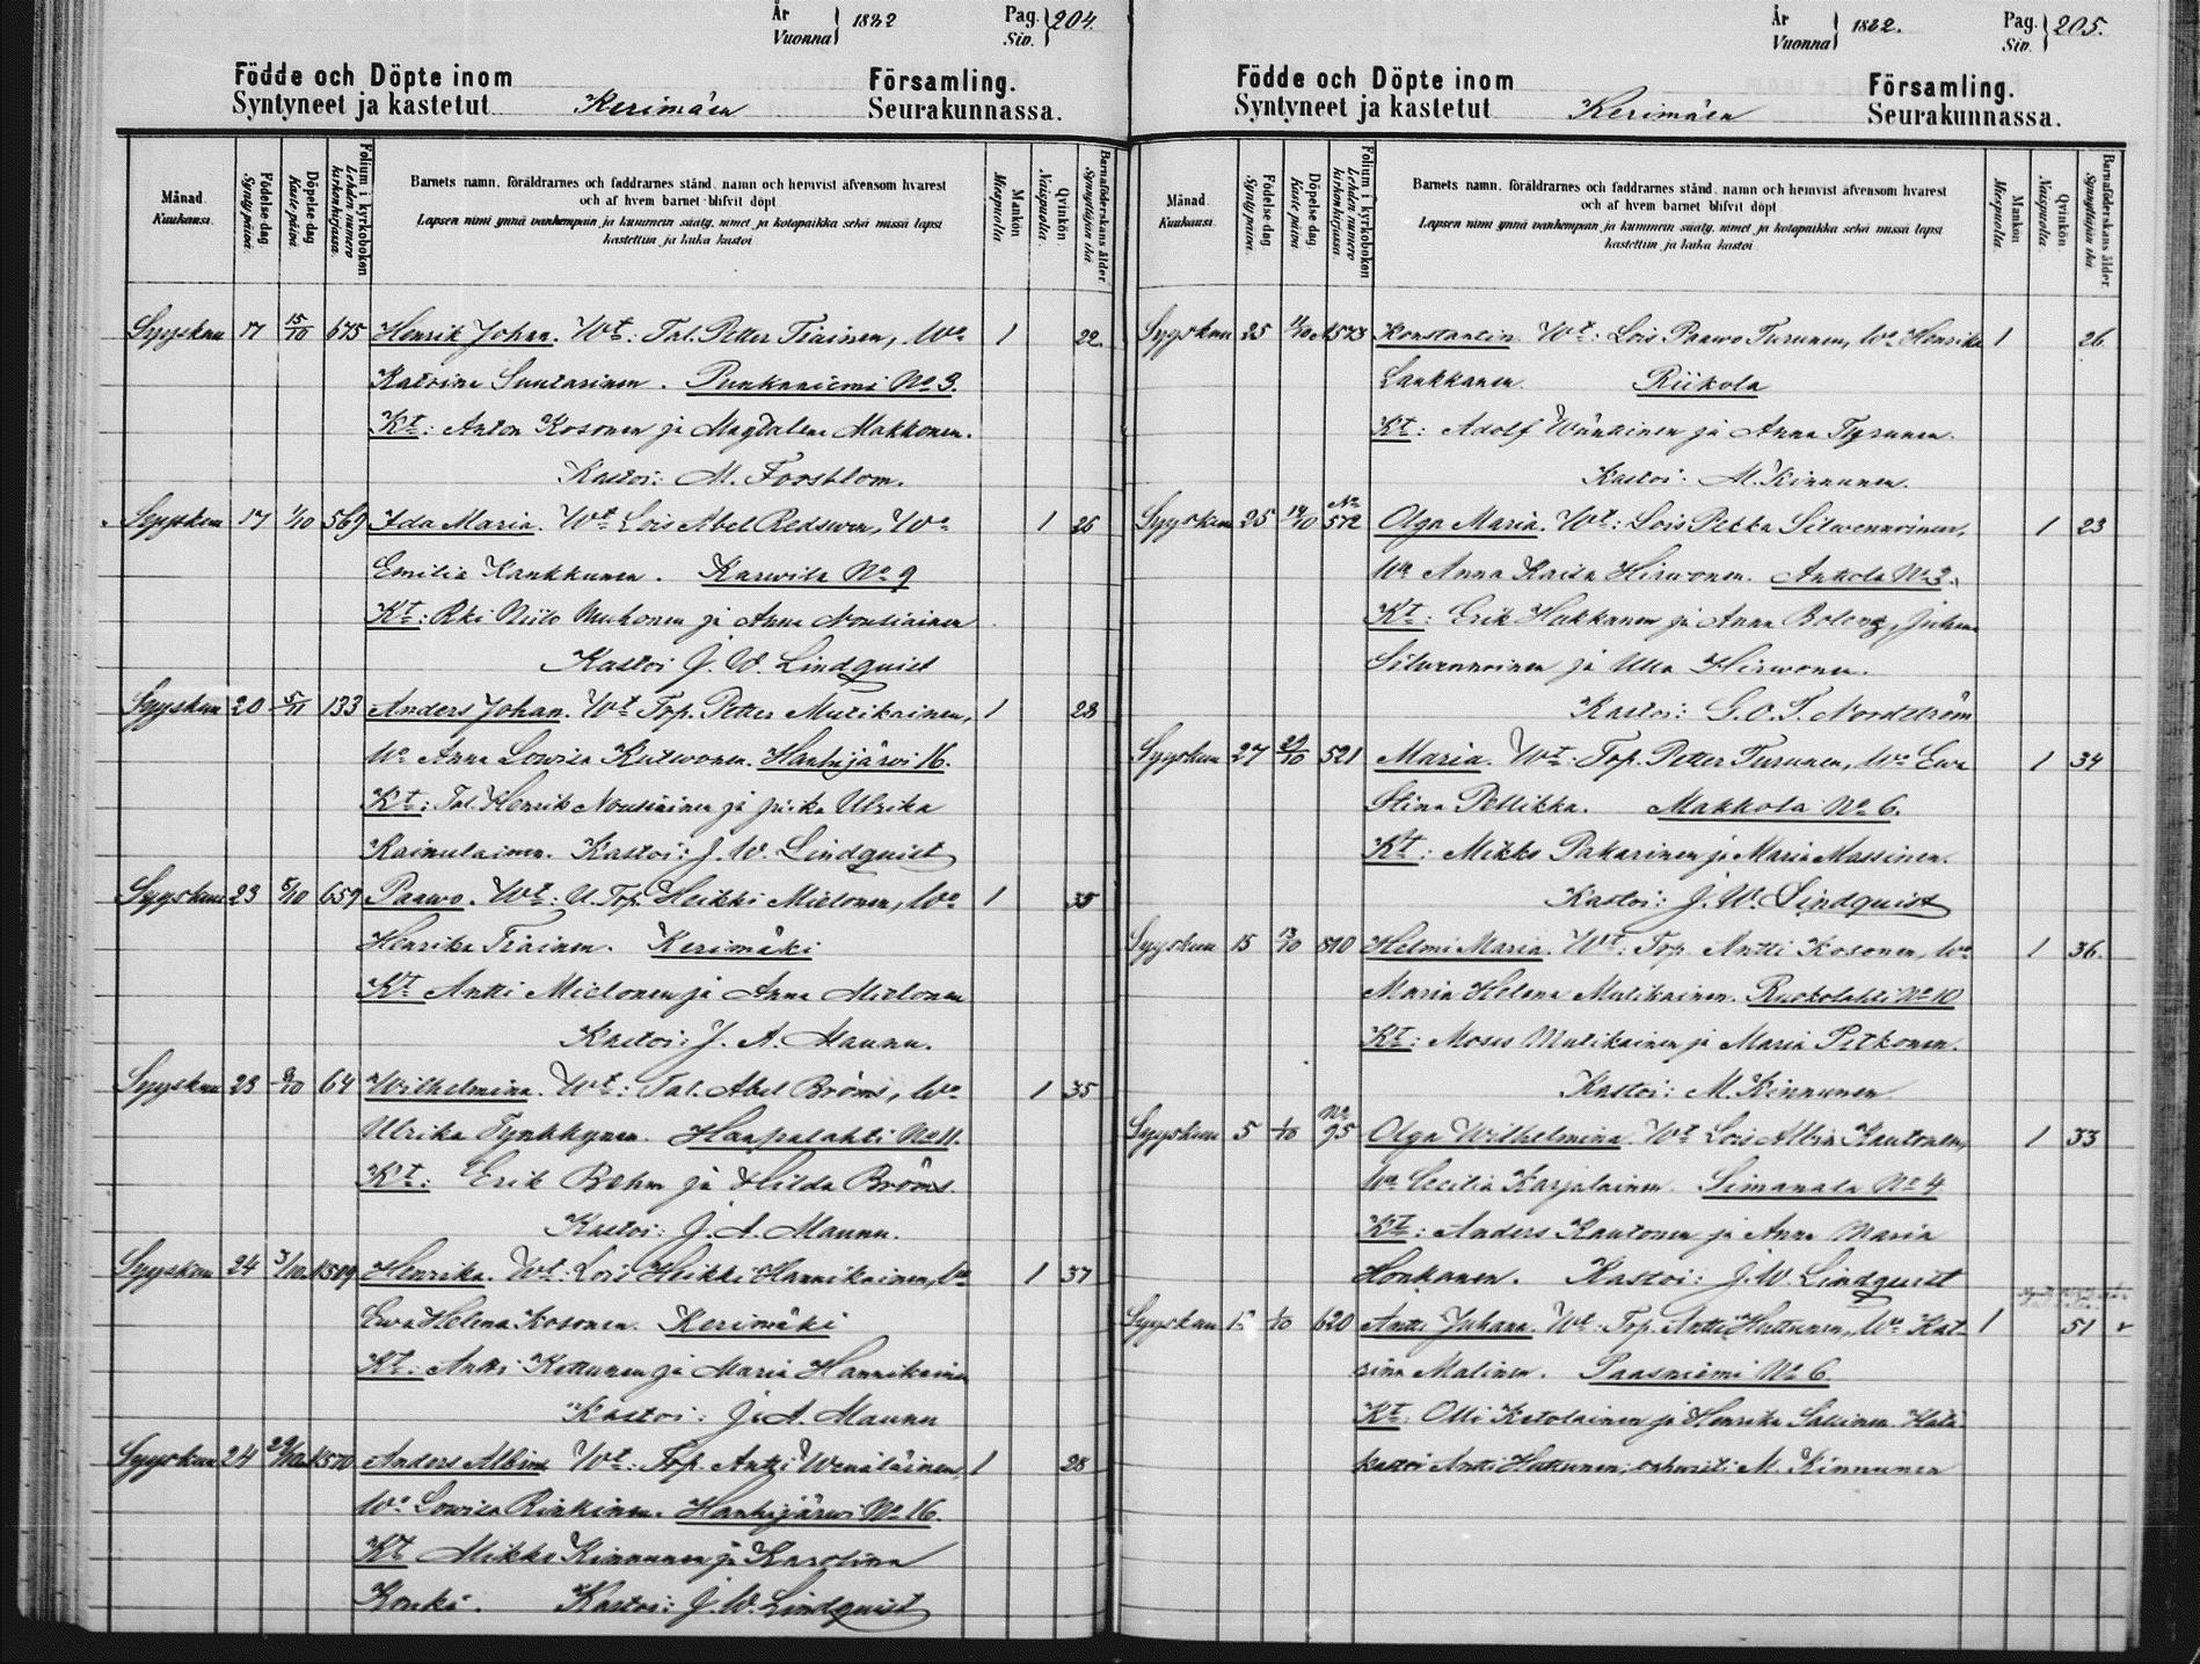 År
Vuonna } 1882 Pag.
Siv. } 204.
Födde och Döpte inom Församling.
Syntyneet ja kastetut Kerimäen Seurakunnassa.
Månad. Kuukausi.
Födelse-dag Synty päivä.
Döpelse-dag Kaste päivä.
Folium i kyrkoboken Lehden numero kirkonkirjassa.
Barnets namn, föräldrarnes och faddrarnes stånd, namn och hemvist äfvensom hvarest
och af hvem barnet blifvit döpt.
Lapsen nimi ynnä vanhempain ja kummein sääty, nimet ja kotopaikka sekä missä lapsi
kastettiin ja kuka kastoi.
Mankön Miespuolia.
Qvinkön Naispuolia.
Barnaföderskans ålder. Synnyttäjän ikä.
Syyskuu 17 15/10 675 Henrik Johan. Wt: Tal. Petter Tiainen, Wo 1 22.
Katrina Suutarinen. Punkaniemi No 3.
Kt: Anton Kosonen ja Magdalena Makkonen.
Kastoi: M. Forsblom.
Syyskuu 17 1/10 569 Ida Maria. Wt Lois Abel Redswen, Wo 1 26
Emilia Kankkunen. Karwila No 9
Kt: Rki Niilo Muhonen ja Anna Nousiainen
Kastoi J. W. Lindquist
Syyskuu 20 5/11 133 Anders Johan. Wt Torp. Petter Mutikainen, 1 28
Wo Anna Lowisa Kutwonen. Hanhijärwi 16.
Kt: Tal. Henrik Nousiainen ja Ulrika
Kainulainen. Kastoi: J. W. Lindquist
Syyskuu 23 8/10 659 Paawo. Wt: U. Top. Heikki Mielonen, Wo 1 35
Henrika Tiainen. Kerimäki
Kt Antti Mielonen ja Anna Mielonen
Kastoi: J. A. Maunu.
Syyskuu 23 8/10 64 Wilhelmina. Wt: Tal. Abel Bröms, Wo 1 35
Ulrika Tynkkynen. Haapalahti No 11.
Kt: Erik Behm ja Hilda Bröms.
Kastoi: J. A. Maunu.
Syyskuu 24 3/10 1589 Henrika. Wt: Lois Heikki Hannikainen, Wo 1 37
Ewa Helena Kosonen. Kerimäki
Kt: Antti Kettunen ja Maria Hannikainen
Kastoi: J. A. Maunu
Syyskuu 24 29/10 1570 Anders Albin Wt: Top. Antti Wenäläinen, 1 28
Wo Lowisa Rinkinen. Hanhijärwi No 16.
Kt Mikko Kinnunen ja Karolina
Konki. Kastoi: J. W. Lindquist
År
Vuonna } 1882. Pag.
Siv. } 205.
Födde och Döpte inom Församling.
Syntyneet ja kastetut Kerimäen Seurakunnassa.
Månad Kuukausi.
Födelse-dag Synty päivä.
Döpelse-dag Kaste päivä.
Folium i kyrkoboken Lehden numero kirkonkirjassa.
Barnets namn, föräldrarnes och faddrarnes stånd, namn och hemvist äfvensom hvarest
och af hvem barnet blifvit döpt.
Lapsen nimi ynnä vanhempain ja kummein sääty, nimet ja kotopaikka sekä missä lapsi
kastettiin ja kuka kastoi.
Mankön Miespuolia.
Qvinkön Naispuolia.
Barnaföderskans ålder. Synnyttäjän ikä
Syyskuu 25 1573 Konstantin. Wt: Lois Paawo Turunen, Wo Henrika 1 26
Laukkanen. Riikola
Kt: Adolf Wänninen ja Anna Tyrunen.
Kastoi: M. Kinnunen.
Syyskuu 25 14/10 No 572 Olga Maria. Wt: Lois Pekka Silwennoinen, 1 23
Wo Anna Kaisa Hirwonen. Anttola No 3.
Kt: Erik Hukkanen ja Anna Juhana
Silwennoinen ja Ulla Hirwonen.
Kastoi: G. O. T. Nordström
Syyskuu 27 29/10 521 Maria. Wt: Top. Petter Turunen, Wo Ewa 1 34
Stina Pellikka. Makkola No 6.
Kt: Mikko Pakarinen ja Maria Massinen.
Kastoi: J. W. Lindquist
Syyskuu 15 13/10 810 Helmi Maria. Wt: Top. Antti Kosonen, Wo 1 36.
Maria Helena Mutikainen. Ruokolahti No 10
Kt: Moses Mutikainen ja Maria Pitkonen.
Kastoi: M. Kinnunen
Syyskuu 5 1/10 No 95 Olga Wilhelmina. Wt Lois Albin Kautonen, 1 33
Wo Cecilia Karjalainen. Simanala No 4
Kt: Anders Kautonen ja Anna Maria
Honkanen. Kastoi: J. W. Lindquist
Syyskuu 1/10 620 Antti Juhana. Wt: Top. Antti Huttunen, Wo Kat- 1 51
rina Malinen. Paasniemi No 6.
Kt: Olli Ketolainen ja Henrika Sallinen. Hätä-
kastoi Antti Huttunen; wahwisti M. Kinnunen